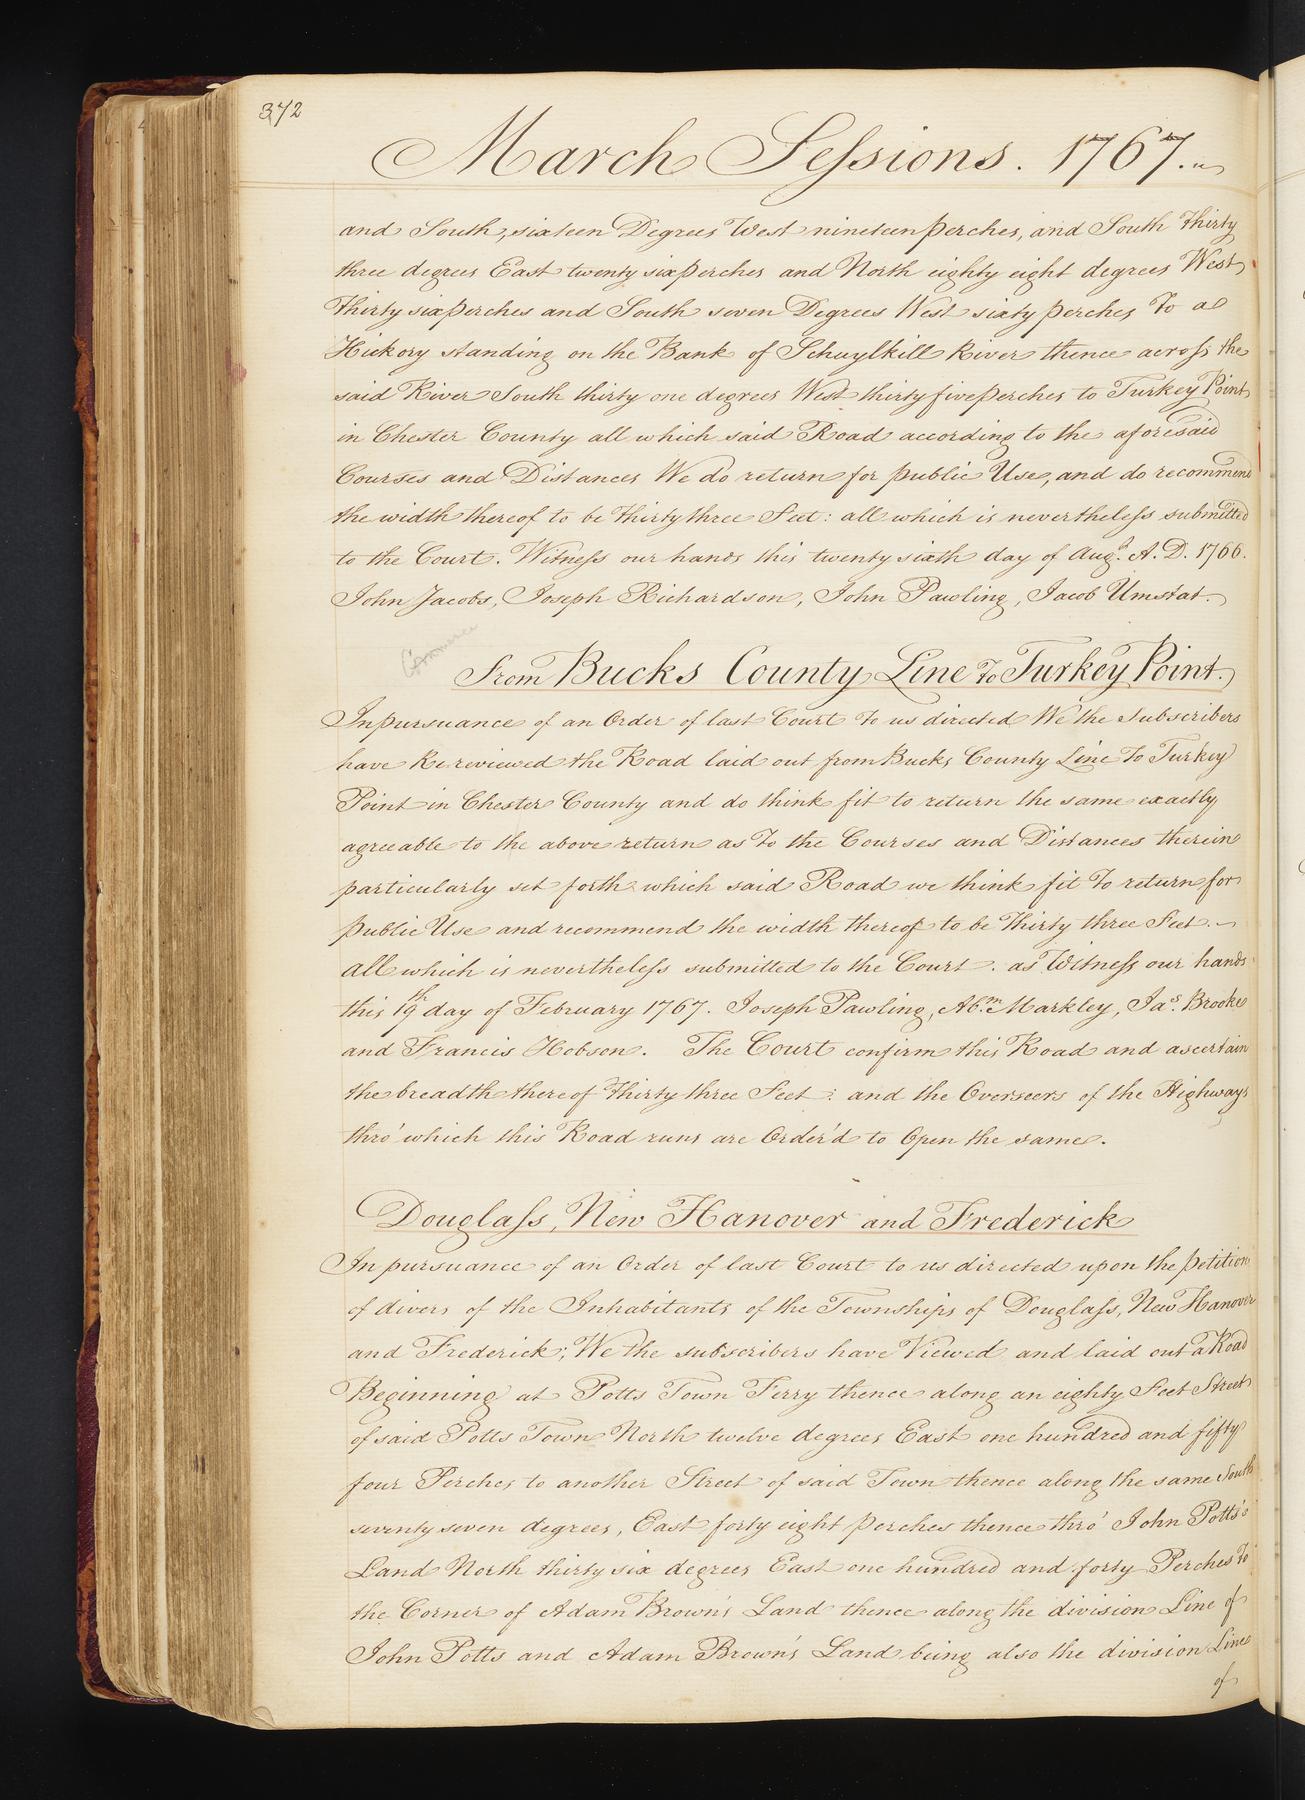 372
March Sessions. 1767.
and South, sixteen Degrees West nineteen perches, and South Thirty
three degrees East twenty six perches and North eighty eight degrees West
thirty six perches and South seven Degrees West sixty perches To a
Hickory standing on the Bank of Schuylkill River thence across the
said River South thirty one degrees West thirty five Perches to Turkey Point
in Chester County all which said Road according to the aforesaid
Courses and Distances We do return for public Use, and do recommend
the width thereof to be thirty three Feet: all which is nevertheless submitted
to the Court. Witness our hands this twenty sixth day of Augt. A. D. 1766.
John Jacobs, Joseph Richardson, John Pawling, Jacob Umstat.
Commerce
From Bucks County Line To Turkey Point.
In pursuance of an Order of last Court To us directed We the Subscribers
have Rereviewed the Road laid out from Bucks County Line To Turkey
Point in Chester County and do think fit to return the same exactly
agreeable to the above return as To the Courses and Distances therein
particularly set forth which said Road we think fit To return for
public Use and recommend the width thereof to be Thirty three Feet.
all which is nevertheless submitted to the Court. as Witness our hands
this 19th day of February 1767. Joseph Pawling, Abm. Markley, Jas. Brooke
and Francis Hobson. The Court confirm this Road and ascertain
the breadth thereof Thirty three Feet: and the Overseers of the Highways
thro' which this Road runs are Order'd to Open the same.
Douglass, New Hanover and Frederick
In pursuance of an Order of last Court to us directed upon the petition
of divers of the Inhabitants of the Townships of Douglass, New Hanover
and Frederick; We the subscribers have Viewed and laid out a Road
Beginning at Potts Town Ferry thence along an eighty Feet Street
of said Potts Town North twelve degrees East one hundred and fifty
four Perches to another Street of said Town thence along the same South
seventy seven degrees, East forty eight perches thence thro' John Potts's
Land North thirty six degrees East one hundred and forty Perches To
the Corner of Adam Brown's Land thence along the division Line of
John Potts and Adam Brown's Land being also the division Line
of